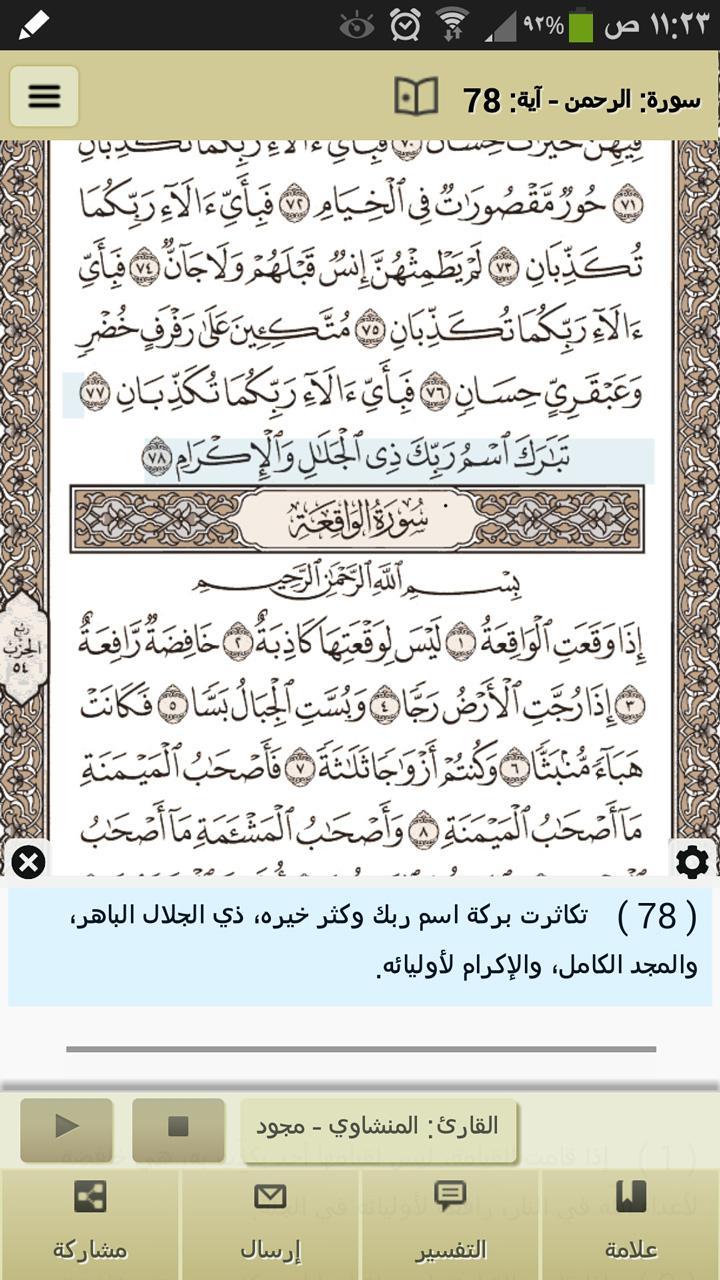 ١١:٢٣ ص ٩٢%
سورة: الرحمن - آية: 78
فِيهِنَّ خَيْرَٰتٌ حِسَانٌ ٧٠ فَبِأَىِّ ءَالَآءِ رَبِّكُمَا تُكَذِّبَانِ
٧١ حُورٌ مَّقْصُورَٰتٌ فِى ٱلْخِيَامِ ٧٢ فَبِأَىِّ ءَالَآءِ رَبِّكُمَا
تُكَذِّبَانِ ٧٣ لَمْ يَطْمِثْهُنَّ إِنسٌ قَبْلَهُمْ وَلَا جَآنٌّ ٧٤ فَبِأَىِّ
ءَالَآءِ رَبِّكُمَا تُكَذِّبَانِ ٧٥ مُتَّكِـِٔينَ عَلَىٰ رَفْرَفٍ خُضْرٍ
وَعَبْقَرِىٍّ حِسَانٍ ٧٦ فَبِأَىِّ ءَالَآءِ رَبِّكُمَا تُكَذِّبَانِ ٧٧
تَبَٰرَكَ ٱسْمُ رَبِّكَ ذِى ٱلْجَلَٰلِ وَٱلْإِكْرَامِ ٧٨
سُورَةُ الوَاقِعَةِ
بِسْمِ ٱللَّهِ ٱلرَّحْمَٰنِ ٱلرَّحِيمِ
إِذَا وَقَعَتِ ٱلْوَاقِعَةُ ١ لَيْسَ لِوَقْعَتِهَا كَاذِبَةٌ ٢ خَافِضَةٌ رَّافِعَةٌ
٣ إِذَا رُجَّتِ ٱلْأَرْضُ رَجًّا ٤ وَبُسَّتِ ٱلْجِبَالُ بَسًّا ٥ فَكَانَتْ
هَبَآءً مُّنۢبَثًّا ٦ وَكُنتُمْ أَزْوَٰجًا ثَلَٰثَةً ٧ فَأَصْحَٰبُ ٱلْمَيْمَنَةِ
مَآ أَصْحَٰبُ ٱلْمَيْمَنَةِ ٨ وَأَصْحَٰبُ ٱلْمَشْـَٔمَةِ مَآ أَصْحَٰبُ
ربع
الحزب
٥٤
( 78 ) تكاثرت بركة اسم ربك وكثر خيره، ذي الجلال الباهر،
والمجد الكامل، والإكرام لأوليائه.
القارئ: المنشاوي - مجود
علامة
التفسير
إرسال
مشاركة